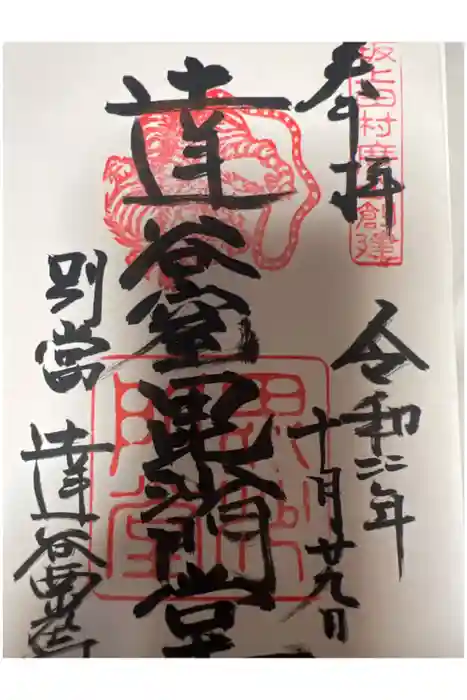 坂上田村麿創建
奉拝
令和二年
十月廿九日
達谷窟毘沙門堂
毘沙門堂
別當
達谷西光寺